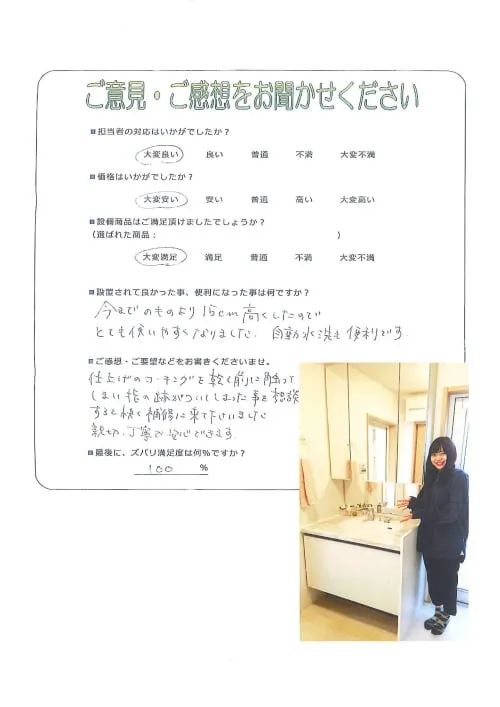 ご意見・ご感想をお聞かせください
■担当者の対応はいかがでしたか?
大変良い 良い 普通 不満 大変不満
■価格はいかがでしたか?
大変安い 安い 普通 高い 大変高い
■設備商品はご満足頂けましたでしょうか?
(選ばれた商品: )
大変満足 満足 普通 不満 大変不満
■設置されて良かった事、便利になった事は何ですか?
今までのものより15cm高くしたので
とても使いやすくなりました. 自動水洗も便利です.
■ご感想・ご要望などをお書きくださいませ。
仕上げのコーチングを乾く前に触って
しまい指の跡がついてしまった事を相談
すると快く補修に来て下さいました
親切、丁寧で安心できます.
■最後に、ズバリ満足度は何%ですか?
100 %